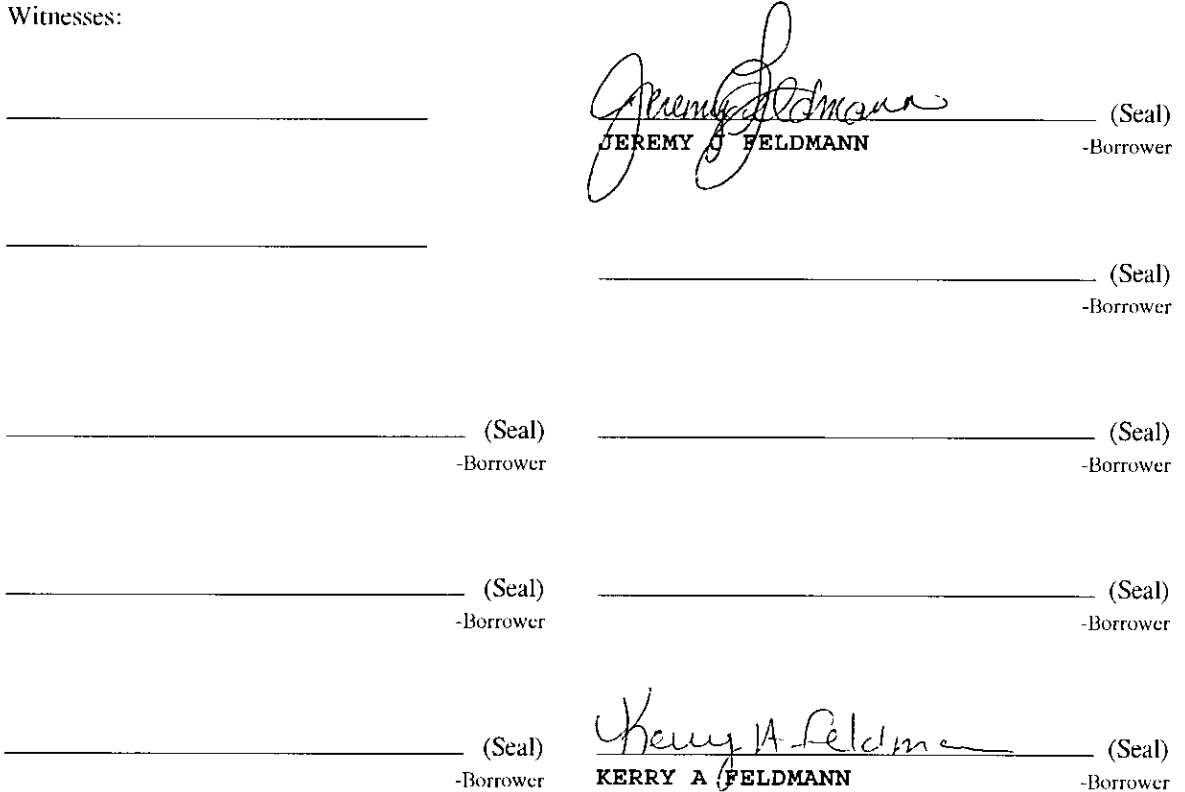 Witnesses:
Jeremy J Feldmann (Seal)
JEREMY J FELDMANN -Borrower
(Seal)
-Borrower
(Seal) (Seal)
-Borrower -Borrower
(Seal) (Seal)
-Borrower -Borrower
Kerry A Feldmann
(Seal) (Seal)
-Borrower KERRY A FELDMANN -Borrower